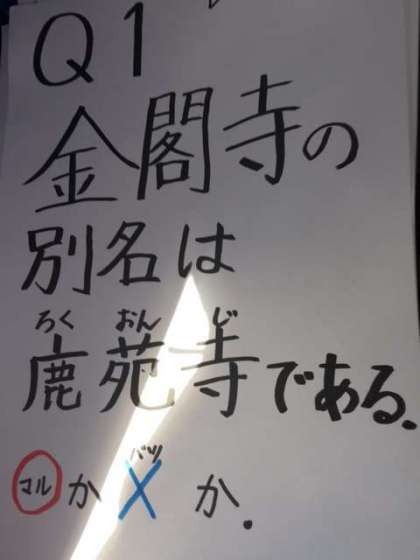 Q1
金閣寺の
別名は
ろく おん じ
鹿苑寺である.
バツ
マルか X か.